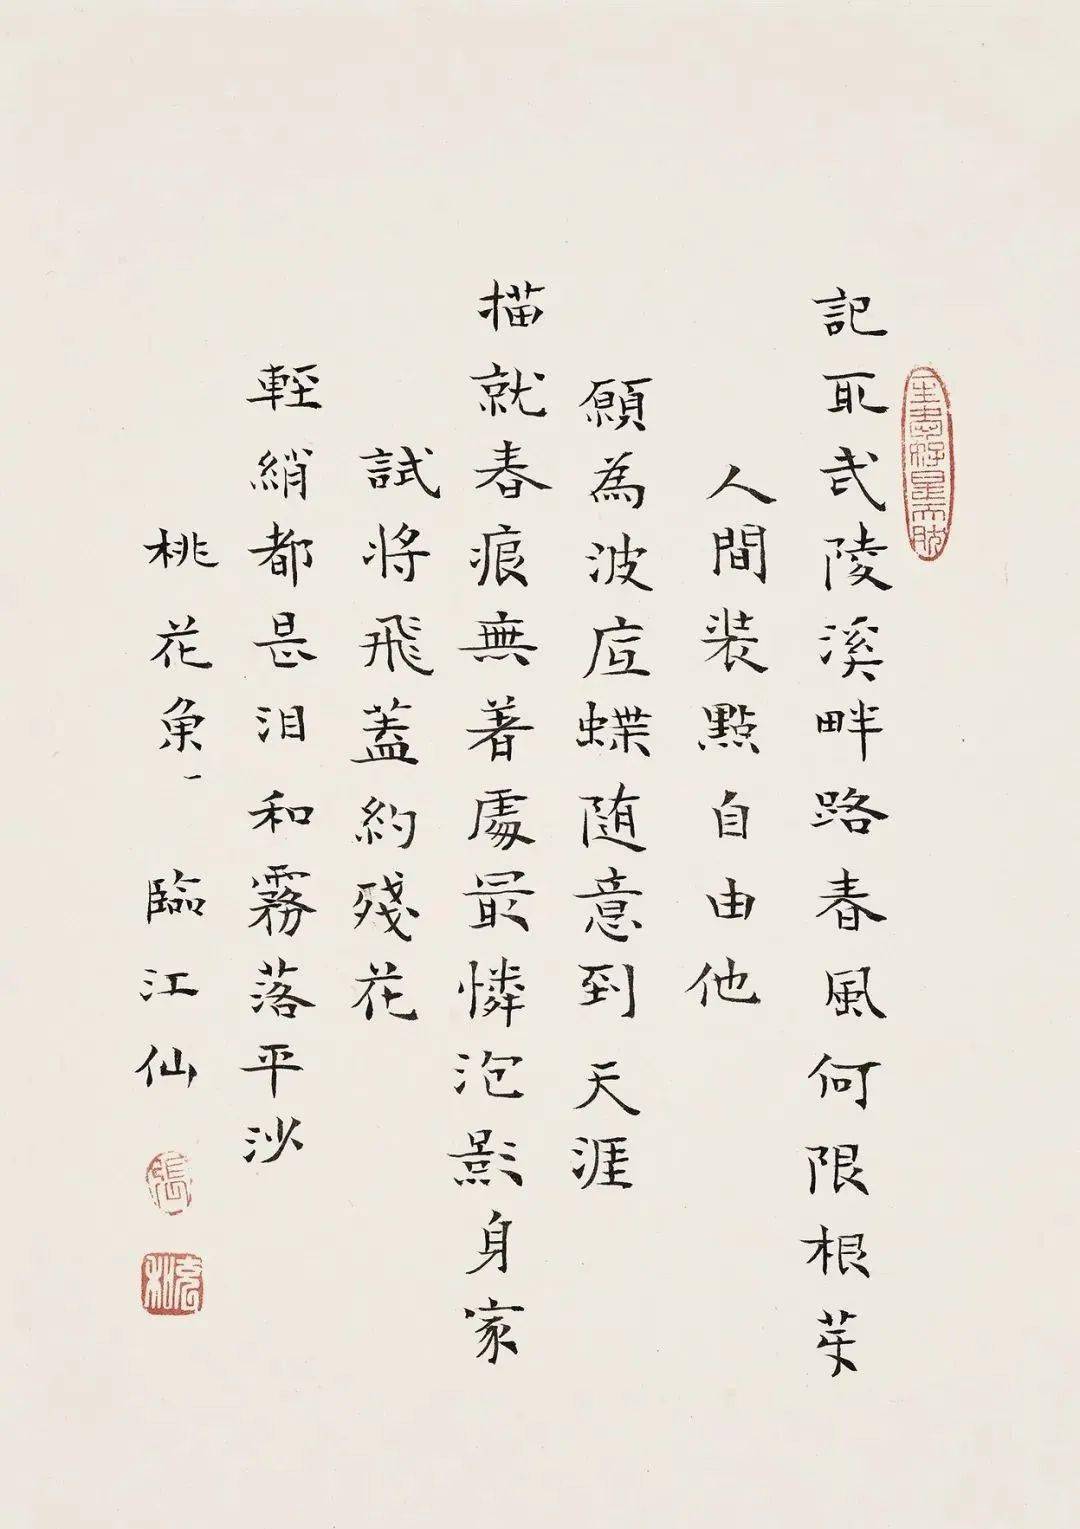 記取武陵溪畔路春風何限根芽
人間裝點自由他
願為波底蝶随意到天涯
描就春痕無著處最憐泡影身家
試將飛蓋約殘花
輕綃都是泪和霧落平沙
桃花魚一 臨江仙
張
充和